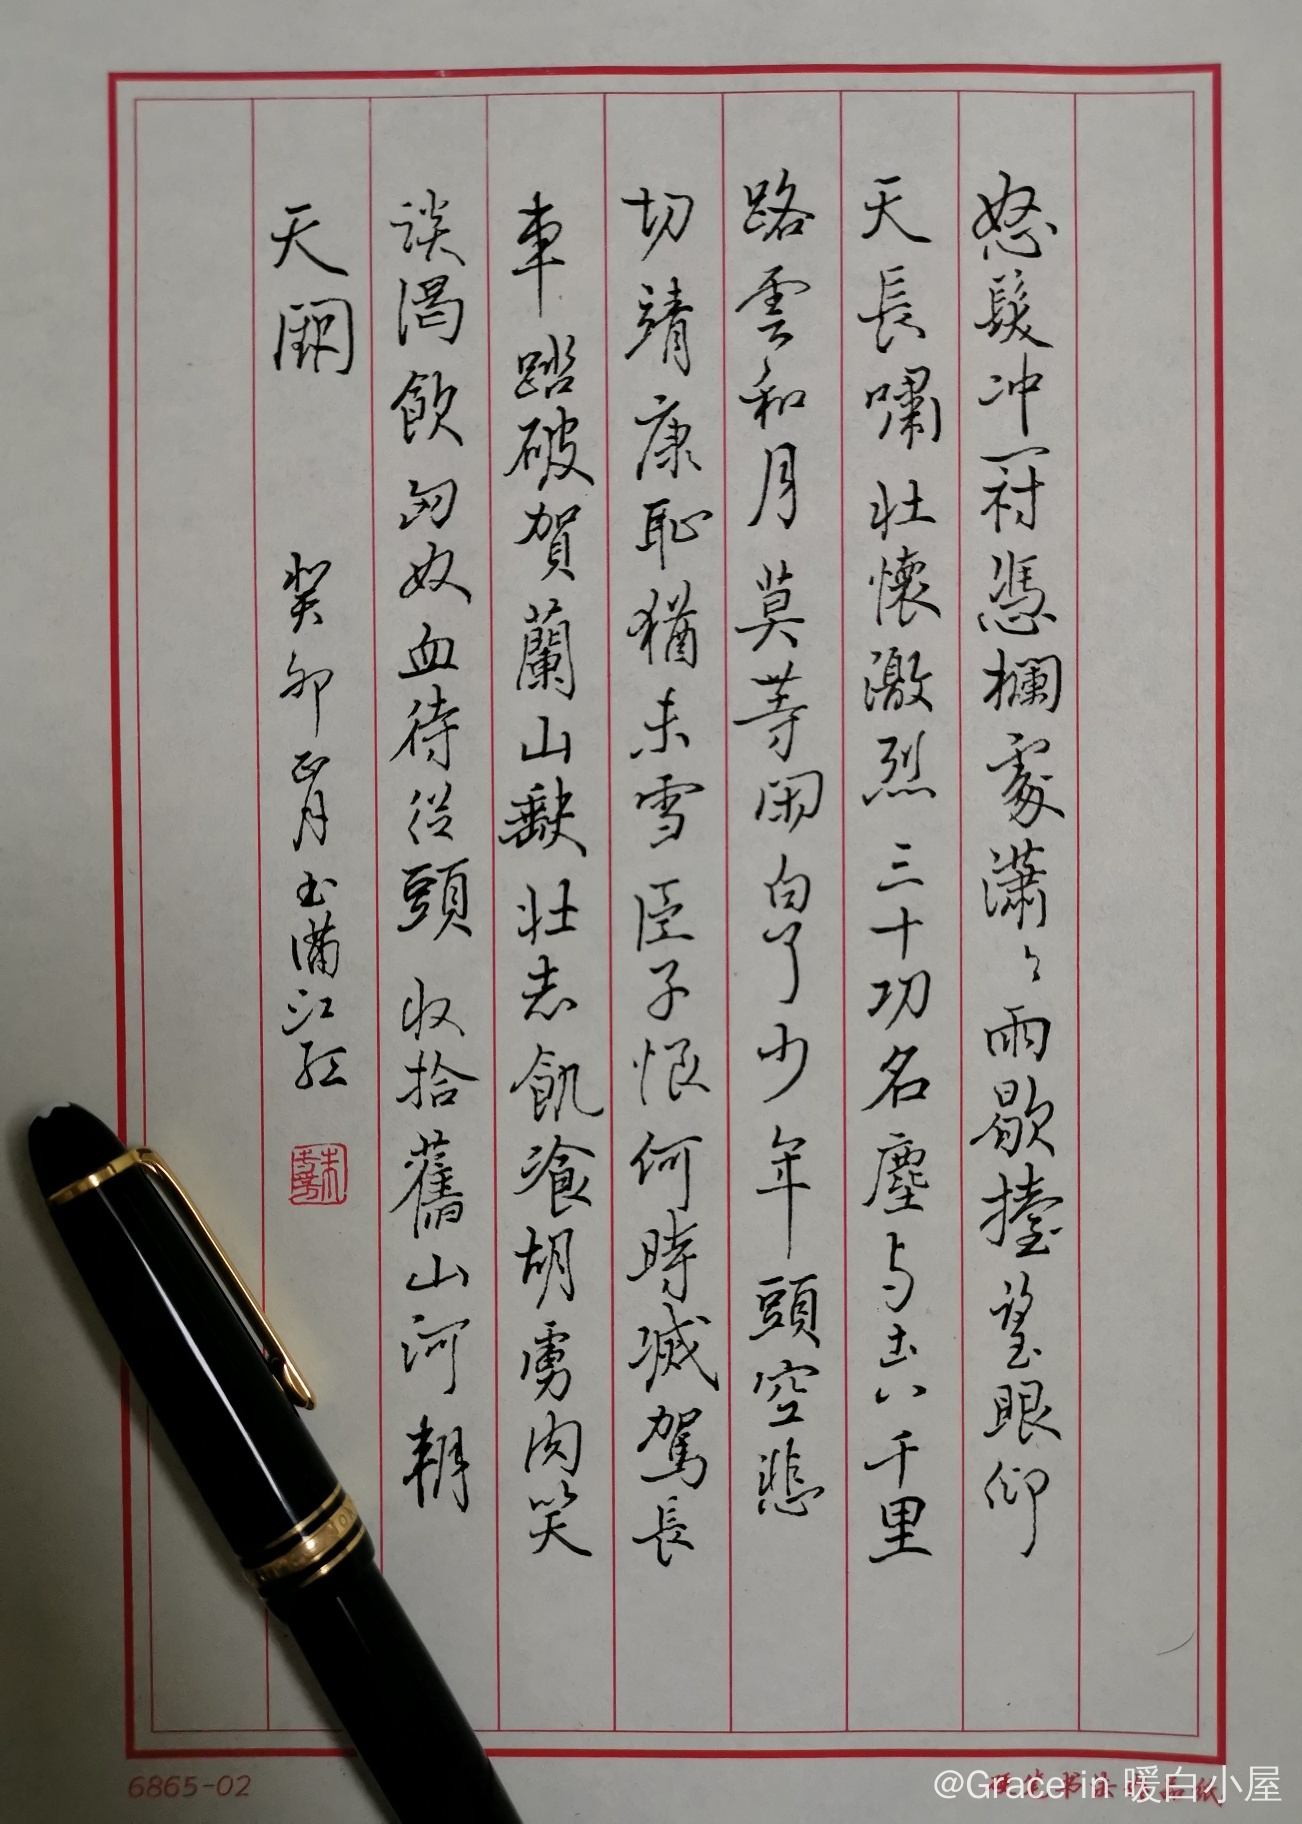 怒髮冲冠憑欄處瀟々雨歇擡望眼仰
天長嘯壯懷激烈三十功名塵与土八千里
路雲和月莫等閑白了少年頭空悲
切靖康恥猶未雪臣子恨何時滅駕長
車踏破賀蘭山缺壯志飢飡胡虜肉笑
談渴飲匈奴血待從頭收拾舊山河朝
天闕
癸卯正月書滿江紅
6865-02
@Grace in 暖白小屋